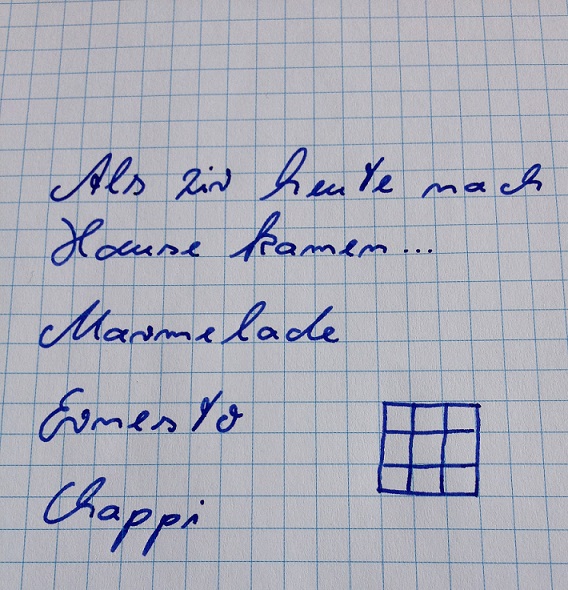 Als wir heute nach
Hause kamen...
Marmelade
Ernesto
Chappi